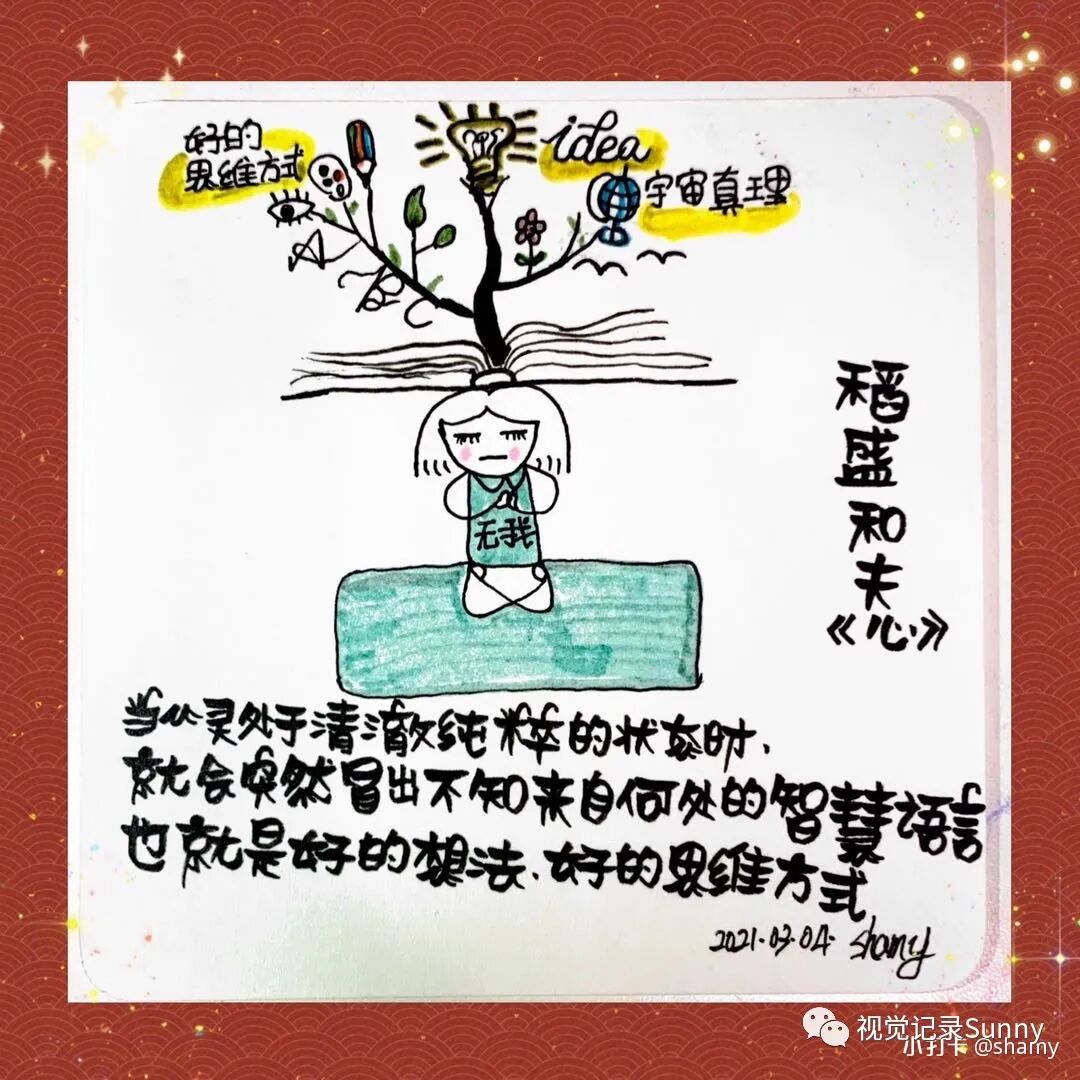 好的
思维方式
idea
宇宙真理
无我
稻盛和夫
《心》
当心灵处于清澈纯粹的状态时,
就会突然冒出不知来自何处的智慧语言
也就是好的想法、好的思维方式
2021.03.04. shamy
视觉记录Sunny
小打卡 @shamy